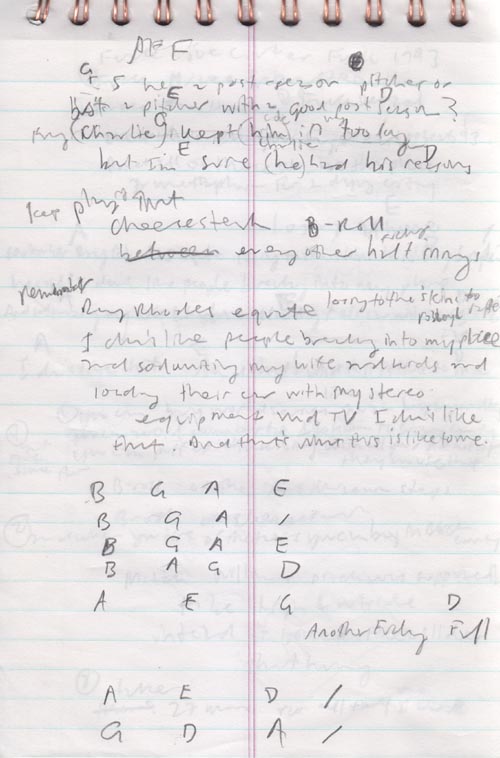 A E E
G E D
Is he a post-season pitcher or
a pitcher with a good post season?
G
(Charlie) kept (him) in too long
Charlie
E D
but I'm sure (he) had his reasons
keep playing that
cheesesteak B-Roll
between every other half inning
remember
Ray Rhodes equate losing to the Skins to
I don't like people breaking into my place
and sodomizing my wife and kids and
loading their car with my stereo
equipment and TV I don't like
that. And that's what this is like to me.
B G A E
B G A /
B G A E
B A G D
A E G D
Another Fucking Full
A E D /
G D A /